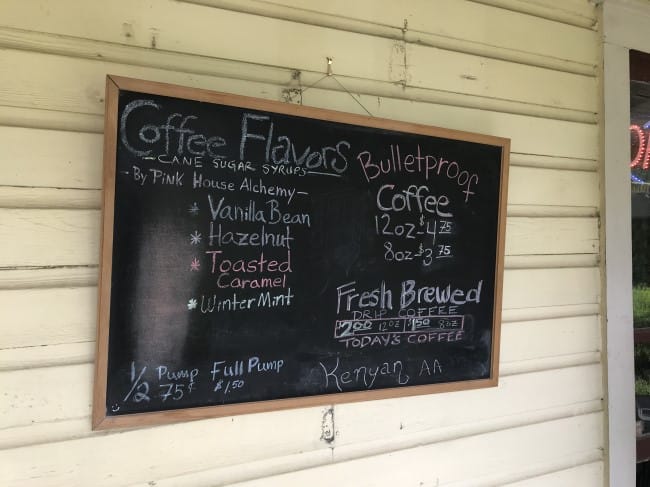 Coffee Flavors
- CANE SUGAR SYRUPS -
- By Pink House Alchemy -
* Vanilla Bean
* Hazelnut
* Toasted
Caramel
* Winter Mint
1/2 Pump Full Pump
75¢ $1.50
Bulletproof
Coffee
12oz - $4.75
8oz - $3.75
Fresh Brewed
DRIP COFFEE
2.00 12oz $1.50 8oz
TODAY'S COFFEE
Kenyan AA